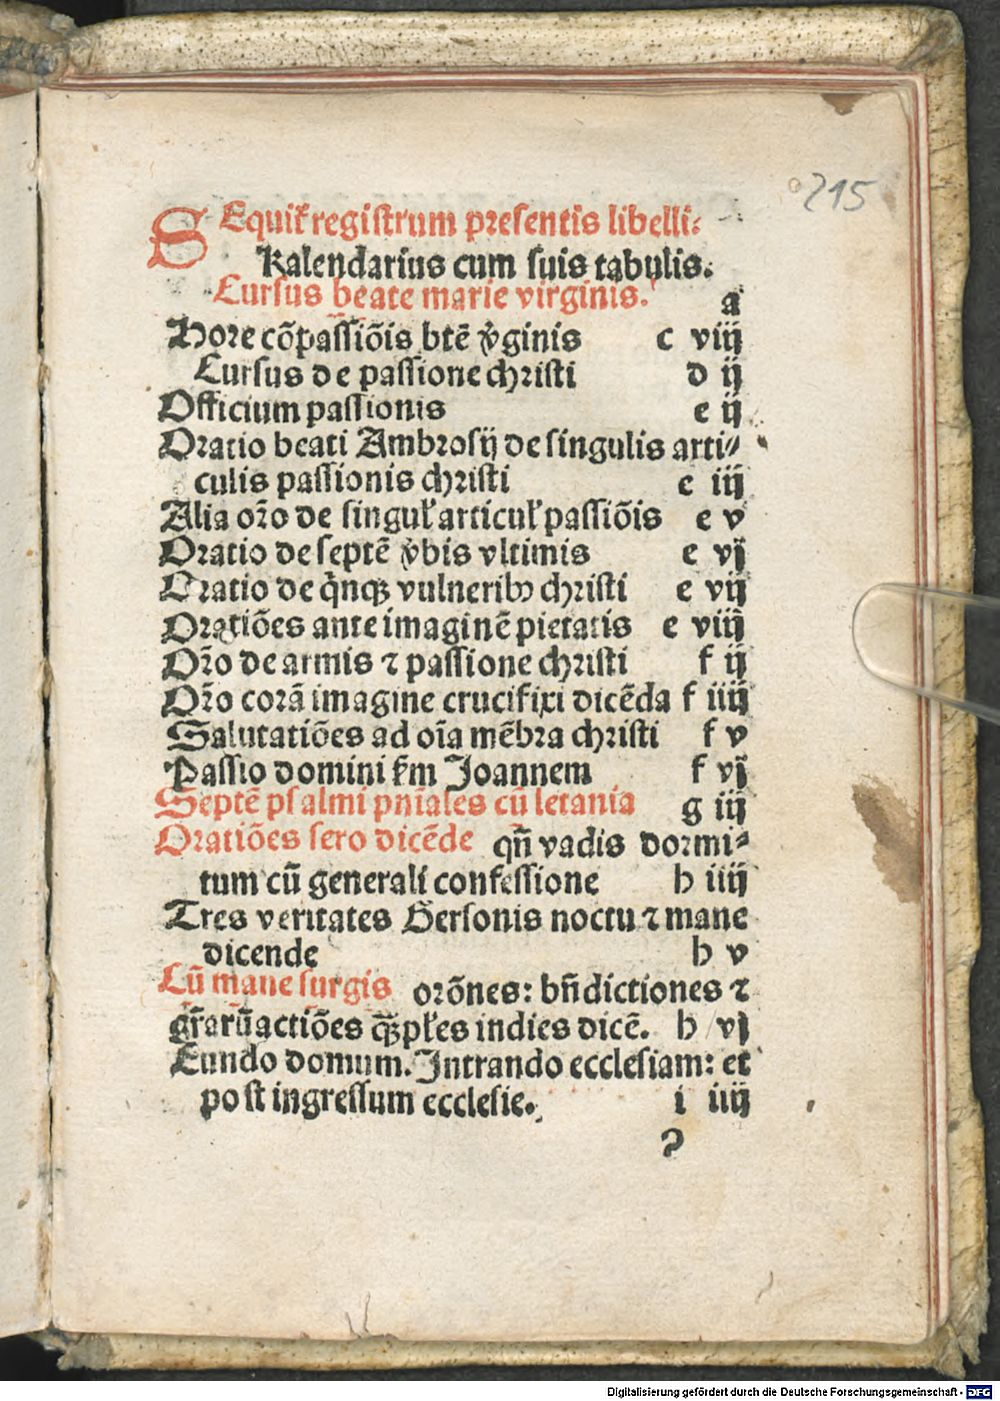 215
SEquit᷑ registrum presentis libelli:
Kalendarius cum suis tabulis.
Cursus beate marie virginis. a
Hore cōpassiōis btē v̓ginis c viij
Cursus de passione christi d ij
Officium passionis e ij
Oratio beati Ambrosij de singulis arti⸗
culis passionis christi e iij
Alia or̄o de singul᷑ articul᷑ passiōis e v
Oratio de septē v̓bis vltimis e vj
Oratio de q̇nqꝫ vulneribꝰ christi e vij
Oratiōes ante imaginē pietatis e viij
Or̄o de armis ⁊ passione christi f ij
Or̄o corā imagine crucifixi dicēda f iiij
Salutatiōes ad oīa mēbra christi f v
Passio domini ẜm Joannem f vj
Septē psalmi pn̄iales cū letania g iij
Oratiōes sero dicēde qn̄ vadis dormi⸗
tum cū generali confessione h iiij
Tres veritates Gersonis noctu ⁊ mane
dicende h v
Cū mane surgis orōnes: bn̄dictiones ⁊
gr̄arūactiōes q̄ꝫpl᷑es indies dicē. h vj
Eundo domum. Intrando ecclesiam: et
post ingressum ecclesie. i iiij
Digitalisierung gefördert durch die Deutsche Forschungsgemeinschaft - DFG